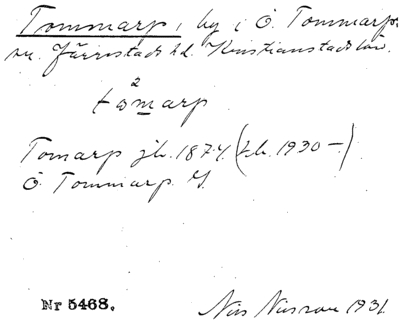 Tommarp, by i Ö. Tommarps
sn. Järrestads hd. Kristianstads län.
2
tomarp
Tomarp jb. 1874 (1930 —)
Ö. Tommarp
Nr 5468. Nils Nilsson 1931